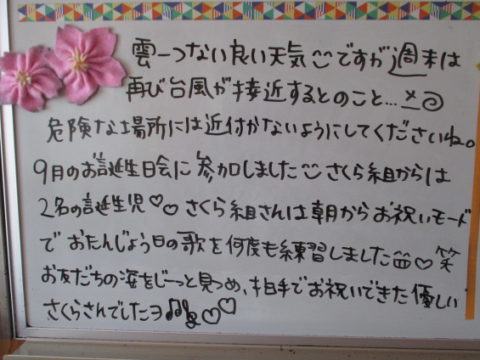 雲一つない良い天気ですが週末は
再び台風が接近するとのこと…
危険な場所には近付かないようにしてくださいね。
9月のお誕生日会に参加しました さくら組からは
2名の誕生児♡♡ さくら組さんは朝からお祝いモード
で おたんじょう日の歌を何度も練習しました♡笑
お友だちの姿をじーっと見つめ、拍手でお祝いできた優しい
さくらさんでしたヨ♪♡♡